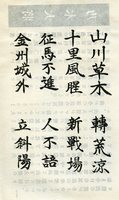 山川草木 轉荒涼
十里風腥 新戰場
征馬不進 人不語
金州城外 立斜陽